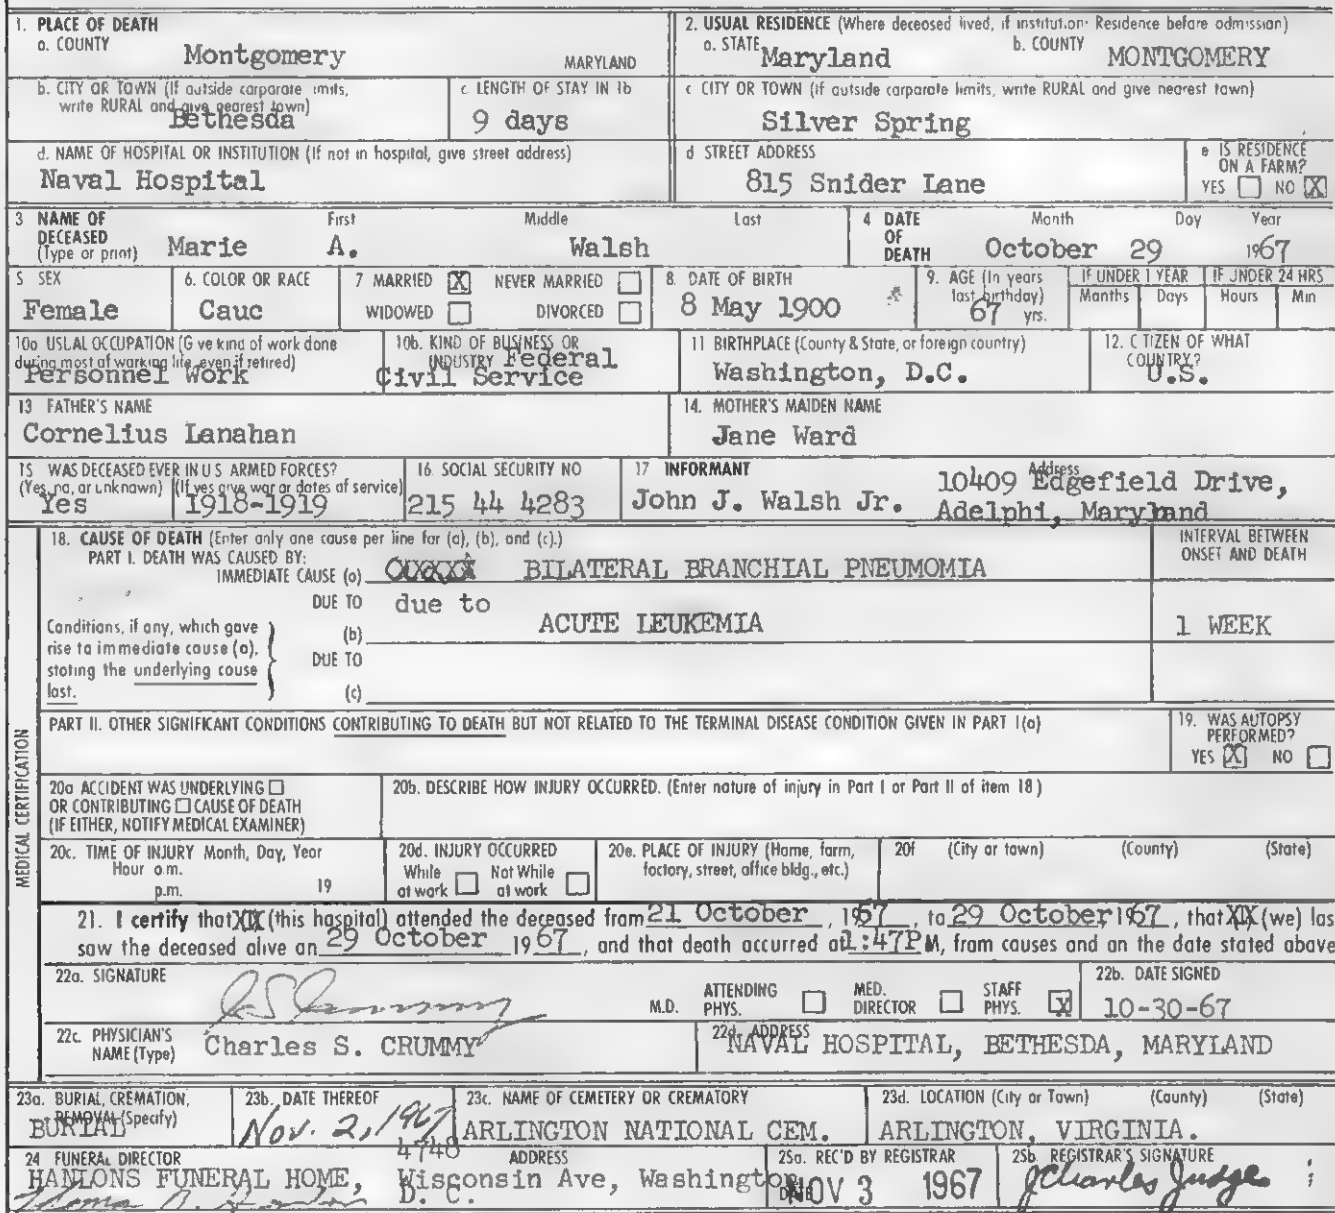 1. PLACE OF DEATH
a. COUNTY
Montgomery MARYLAND
2. USUAL RESIDENCE (Where deceased lived, if institution: Residence before admission)
a. STATE Maryland b. COUNTY MONTGOMERY
b. CITY OR TOWN (If outside corporate limits, write RURAL and give nearest town)
Bethesda
c LENGTH OF STAY IN 1b
9 days
c CITY OR TOWN (if outside corporate limits, write RURAL and give nearest town)
Silver Spring
d. NAME OF HOSPITAL OR INSTITUTION (If not in hospital, give street address)
Naval Hospital
d STREET ADDRESS
815 Snider Lane
e IS RESIDENCE ON A FARM?
YES NO X
3 NAME OF DECEASED (Type or print) First Middle Last
Marie A. Walsh
4 DATE OF DEATH Month Day Year
October 29 1967
5 SEX
Female
6. COLOR OR RACE
Cauc
7 MARRIED X NEVER MARRIED
WIDOWED DIVORCED
8. DATE OF BIRTH
8 May 1900
9. AGE (In years last birthday)
67 yrs.
IF UNDER 1 YEAR
Months Days
IF UNDER 24 HRS
Hours Min
10a USUAL OCCUPATION (Give kind of work done during most of working life, even if retired)
Personnel Work
10b. KIND OF BUSINESS OR INDUSTRY Federal
Civil Service
11 BIRTHPLACE (County & State, or foreign country)
Washington, D.C.
12. CITIZEN OF WHAT COUNTRY?
U.S.
13 FATHER'S NAME
Cornelius Lanahan
14. MOTHER'S MAIDEN NAME
Jane Ward
15 WAS DECEASED EVER IN U S ARMED FORCES?
(Yes, no, or unknown) (If yes give war or dates of service)
Yes 1918-1919
16 SOCIAL SECURITY NO
215 44 4283
17 INFORMANT Address
John J. Walsh Jr. 10409 Edgefield Drive,
Adelphi, Maryland
MEDICAL CERTIFICATION
18. CAUSE OF DEATH (Enter only one cause per line for (a), (b), and (c).)
PART I. DEATH WAS CAUSED BY:
INTERVAL BETWEEN ONSET AND DEATH
IMMEDIATE CAUSE (a) BILATERAL BRANCHIAL PNEUMOMIA
DUE TO due to
Conditions, if any, which gave rise to immediate cause (a), stating the underlying cause last.
(b) ACUTE LEUKEMIA 1 WEEK
DUE TO
(c)
PART II. OTHER SIGNIFICANT CONDITIONS CONTRIBUTING TO DEATH BUT NOT RELATED TO THE TERMINAL DISEASE CONDITION GIVEN IN PART I(a)
19. WAS AUTOPSY PERFORMED?
YES X NO
20a ACCIDENT WAS UNDERLYING
OR CONTRIBUTING CAUSE OF DEATH
(IF EITHER, NOTIFY MEDICAL EXAMINER)
20b. DESCRIBE HOW INJURY OCCURRED. (Enter nature of injury in Part I or Part II of item 18)
20c. TIME OF INJURY Month, Day, Year
Hour a.m.
p.m. 19
20d. INJURY OCCURRED
While at work Not While at work
20e. PLACE OF INJURY (Home, farm, factory, street, office bldg., etc.)
20f (City or town) (County) (State)
21. I certify that XIX (this hospital) attended the deceased from 21 October, 1967, to 29 October 1967, that XIX (we) las
saw the deceased alive on 29 October 1967, and that death occurred at 1:47P M, from causes and on the date stated above
22a. SIGNATURE
M.D. ATTENDING PHYS. MED. DIRECTOR STAFF PHYS. X
22b. DATE SIGNED
10-30-67
22c. PHYSICIAN'S NAME (Type) Charles S. CRUMMY
22d. ADDRESS
NAVAL HOSPITAL, BETHESDA, MARYLAND
23a. BURIAL, CREMATION, REMOVAL (Specify)
BURIAL
23b. DATE THEREOF
Nov. 2, 1967
23c. NAME OF CEMETERY OR CREMATORY
ARLINGTON NATIONAL CEM.
23d. LOCATION (City or Town) (County) (State)
ARLINGTON, VIRGINIA.
24 FUNERAL DIRECTOR ADDRESS
HANLONS FUNERAL HOME, 4748 Wisconsin Ave, Washington
D. C.
25a. REC'D BY REGISTRAR
DATE NOV 3 1967
25b. REGISTRAR'S SIGNATURE
J Charles Judge